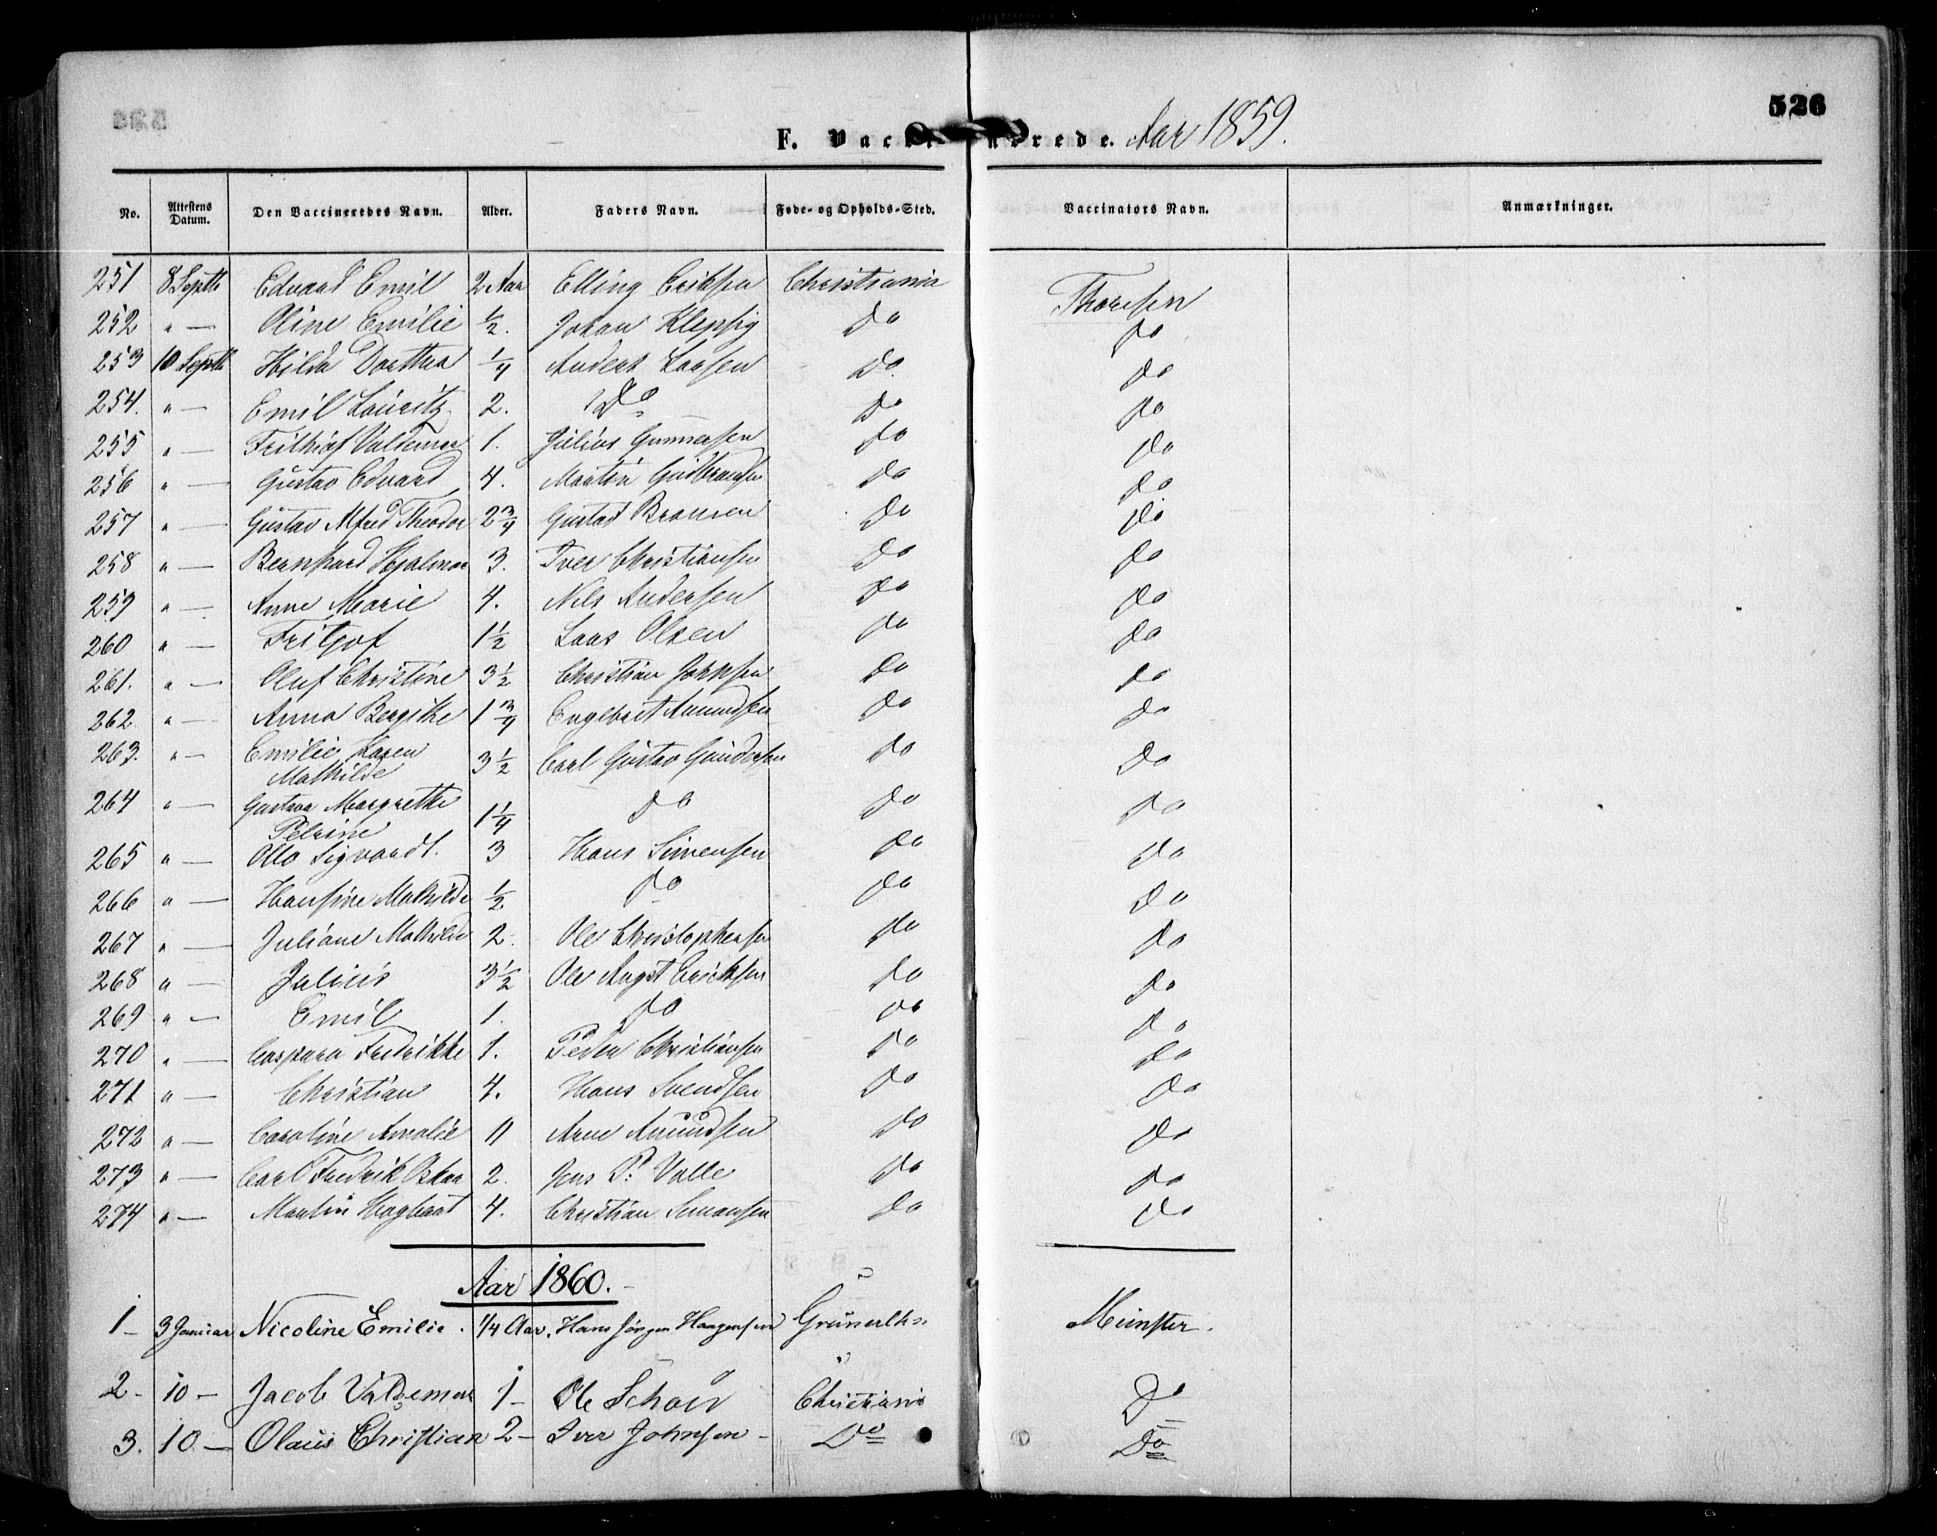 526
F. Vacc nerede. Aar 1859.
No. Attestens Datum. Den Vaccineredes Navn. Alder. Faders Navn. Føde- og Opholds-Sted. Vaccinators Navn. Anmærkninger.
251 8 Septb Edvard Emil 2 Aar Elling Eriksen Christiania Thoresen
252 " — Oline Emilie ½. Johan Klepsig Do Do
253 10 Septb Hilda Dorthea ¼ Anders Larsen Do. Do
254. " — Emil Lauritz 2. Do Do Do
255 " — Frithiof Valdemar 1. Julius Gunnersen Do Do
256 " — Gustav Edvard 4. Martin Gudbransen Do Do
257 " — Gustav Alfred Theodor 2¾ Gustad Do Do
258 " — Bernhard Hjalmar 3. Iver Christiansen Do Do
259 " — Anne Marie 4. Nils Andersen Do Do
260 " — Fritjof 1½ Lars Olsen Do Do
261. " — Oluf Christine 3½ Christian Johnsen Do Do
262 " — Anna Bergithe 1¾ Engebret Amundsen Do Do
263. " — Emilie Karen
Mathilde 3½ Carl Gustav Gundersen Do Do
264 " — Gustava Margrethe
Petrine 1¼ Do Do Do
265 " — Otto Sigvardt. 3 Hans Simensen Do Do
266 " — Hansine Mathilde ½ Do Do Do
267 " — Juliane Mathilde 2. Ole Christophersen Do Do
268 " — Julius 3½ Ole Augst Ericksen Do Do
269 " — Emil 1. Do Do Do
270 " — Caspara Fredrikke 1. Peder Christiansen Do Do
271 " — Christian 4. Hans Svendsen Do Do
272 " — Caroline Amalie 11 Arne Amundsen Do Do
273 " — Carl Fredrik Oskar 2. Jens P. Valle Do Do
274 " — Martin Hagbart 4. Christian Simonsen Do Do
Aar 1860.
1 — 3 Januar Nicoline Emilie. 1/4 Aar. Hans Jørgen Haagensen Grünerlkn Münster.
2 - 10 — Jacob Valdemar 1 — Ole Schou Christiania Do
3. 10 — Olaus Christian 2 — Iver Johnsen — Do Do